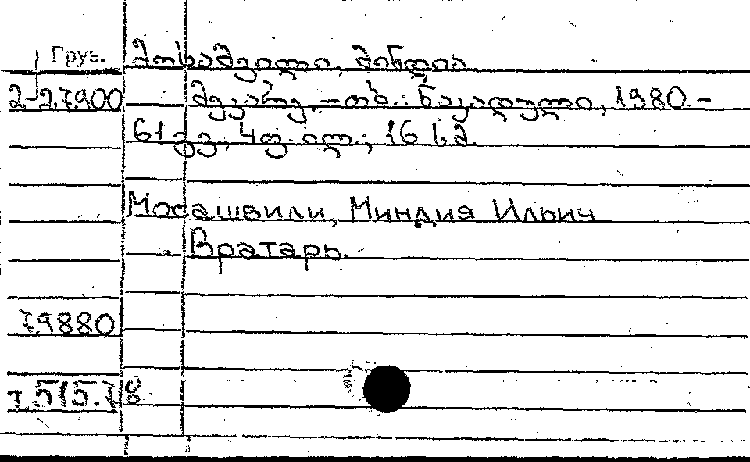 Груз. მოსაშვილი, მინდია.
2-27900 მეკარე. – თბ.: ნაკადული, 1980. –
61 გვ., 4 ფ. ილ.; 16 სმ.
Мосашвили, Миндия Ильич
Вратарь.
79880